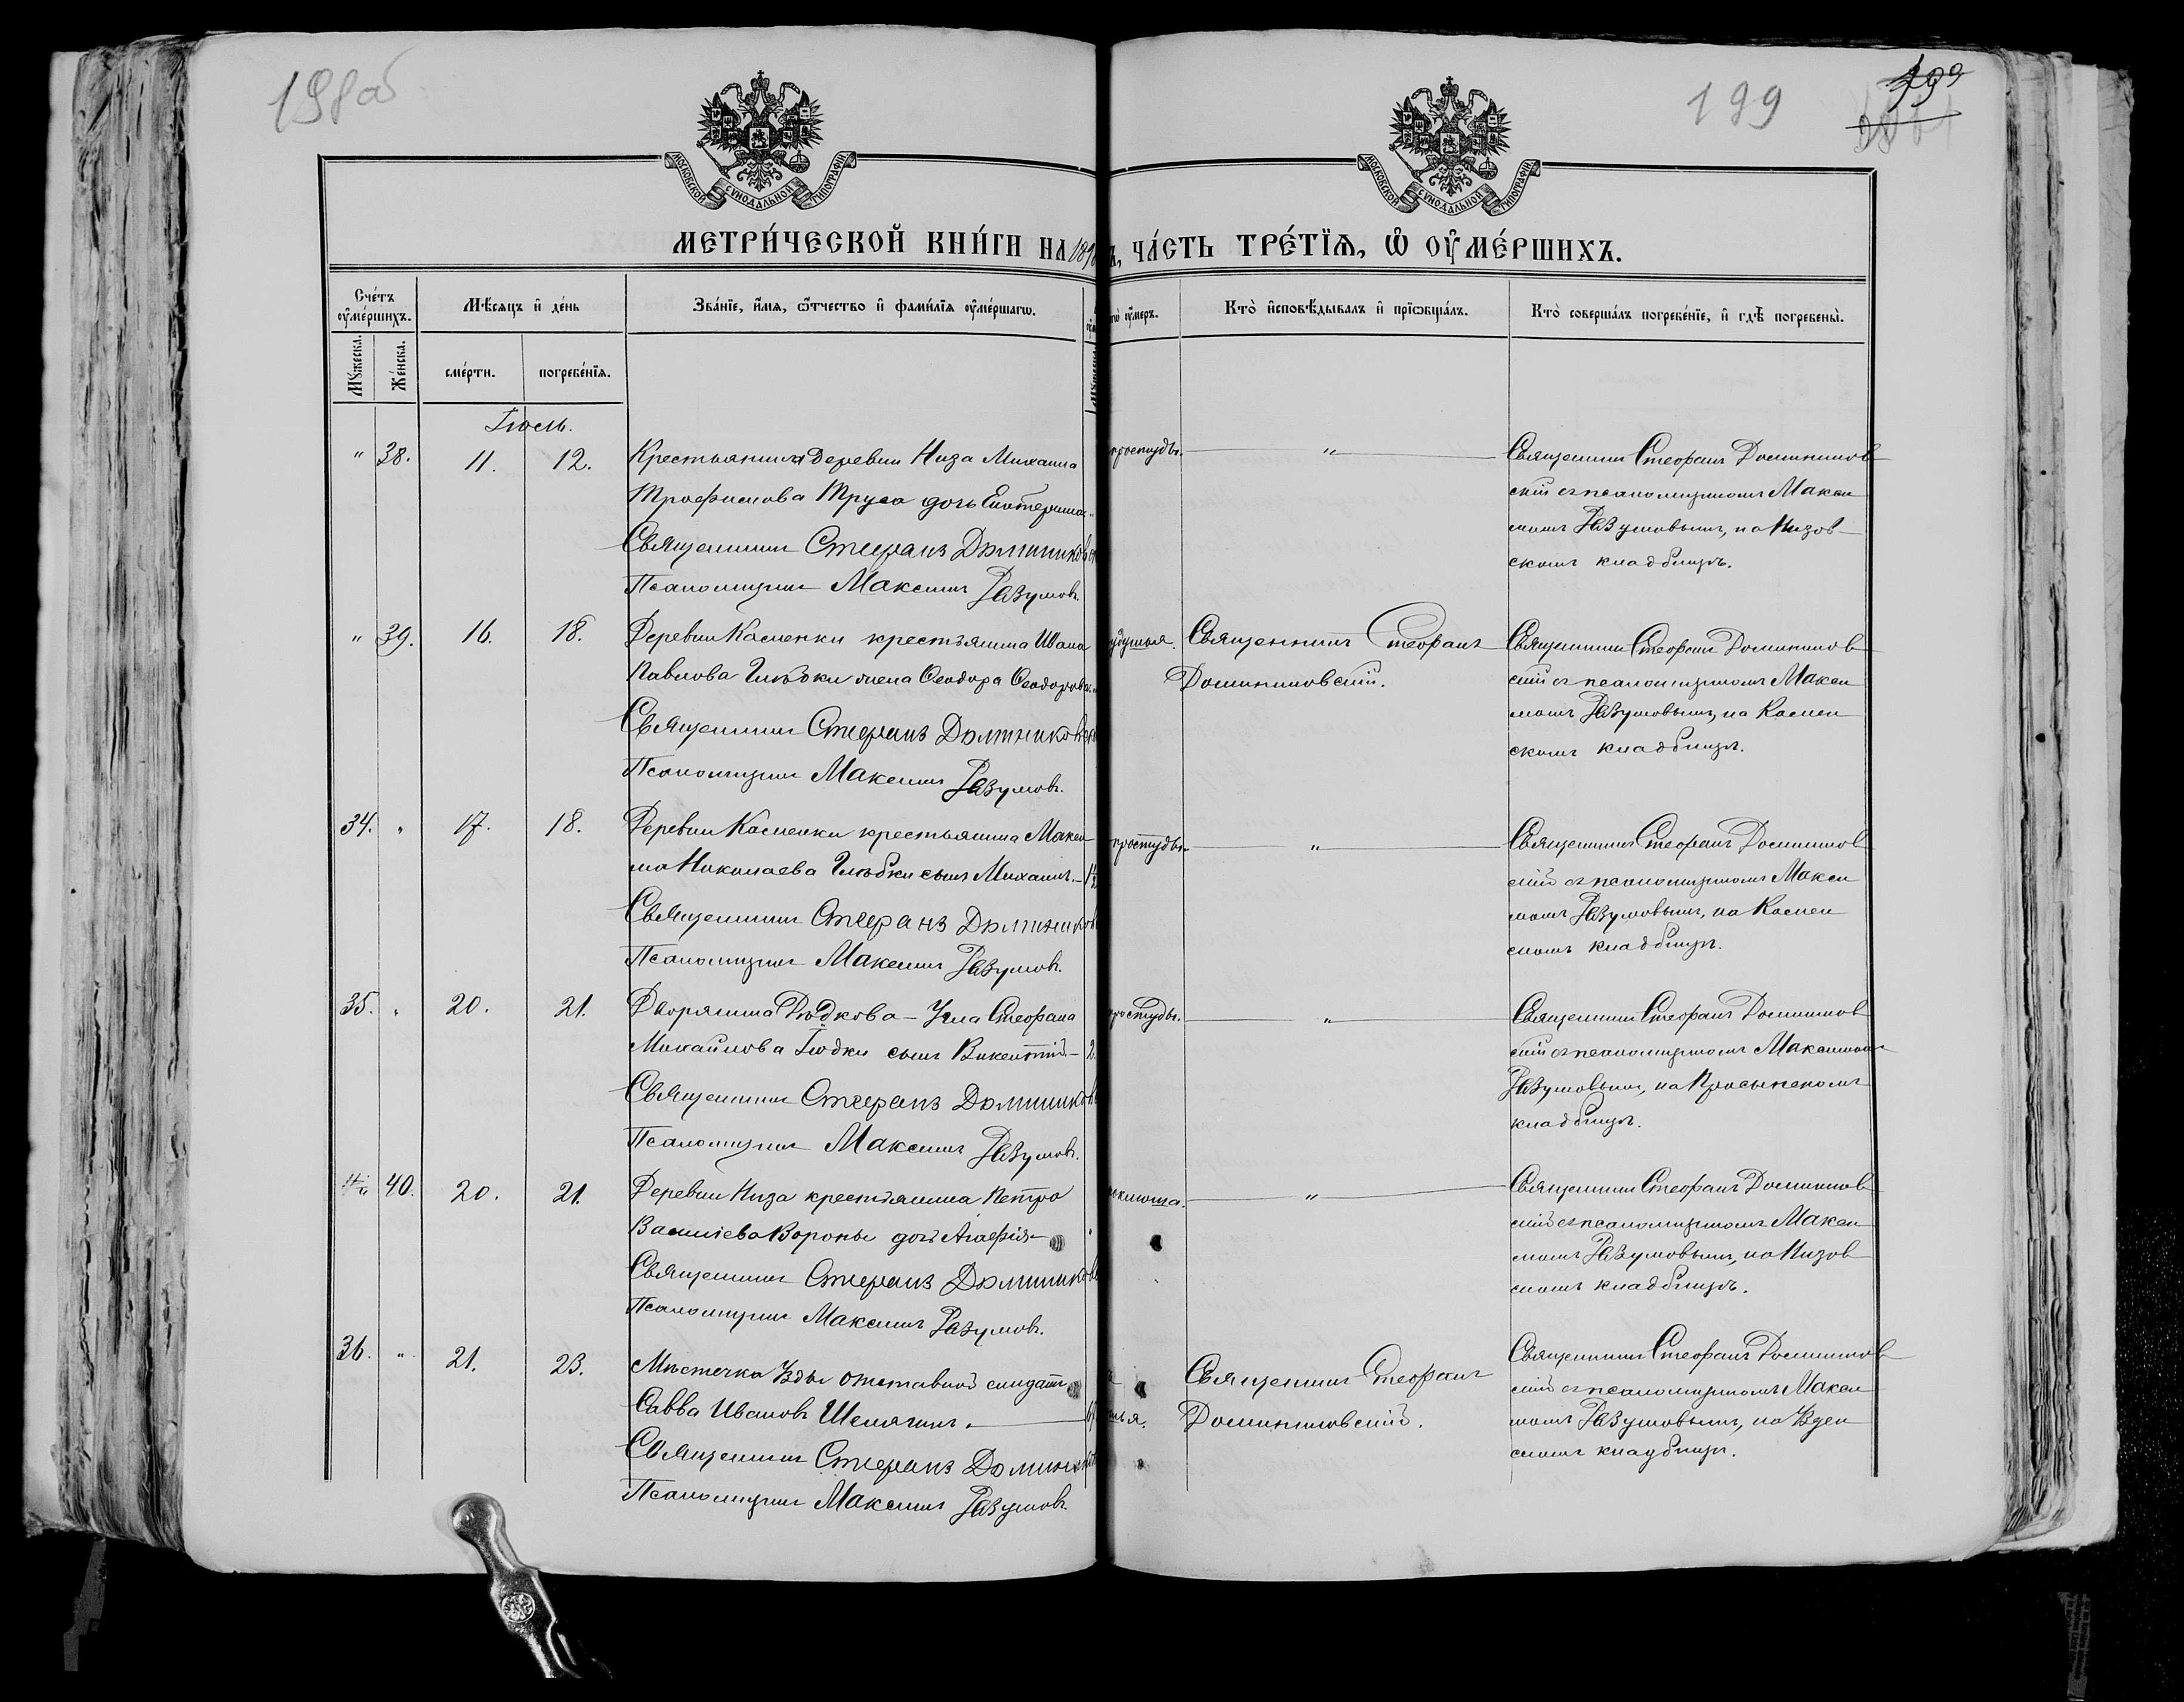 198об
199
199
МОСКОВСКОЙ СѴНОДАЛЬНОЙ ТИПОГРАФІИ
МОСКОВСКОЙ СѴНОДАЛЬНОЙ ТИПОГРАФІИ
МЕТРИ́ЧЕСКОЙ КНИ́ГИ НА 189
ЧА́СТЬ ТРЕ́ТЇѦ, Ѡ҆ ОУ҆МЕ́РШИХЪ.
Сче́тъ оу҆ме́ршихъ.
Мѣ́сяцъ и҆ де́нь
Зва́нїе, и҆́мя, ѻ҆́тчество и҆ фами́лїя оу҆ме́ршагѡ.
оу҆́меръ.
Кто̀ и҆сповѣ́дывалъ и҆ прїѡбща́лъ.
Кто̀ соверша́лъ погребе́нїе, и҆ гдѣ̀ погребены̀.
Мꙋ́жеска.
Же́нска.
сме́рти.
погребе́нїя.
Іюль.
" 38. 11. 12.
Крестьянина деревни Низа Михаила
Трофимова Труса дочь Екатерина
Священникъ Стефанъ Домиников
Псаломщикъ Максимъ Разумовъ.
простуды.
"
Священникъ Стефанъ Домиников
скій съ псаломщикомъ Макси
момъ Разумовымъ, на Низов
скомъ кладбищѣ.
" 39. 16. 18.
Деревни Каменки крестьянина Ивана
Павлова Глѣбки жена Ѳеодора Ѳеодорова
Священникъ Стефанъ Доминиковск
Псаломщикъ Максимъ Разумовъ.
удушья.
Священникъ Стефанъ
Доминиковскій.
Священникъ Стефанъ Домиников
скій съ псаломщикомъ Макси
момъ Разумовымъ, на Камен
скомъ кладбищѣ.
34. " 17. 18.
Деревни Каменки крестьянина Макси
ма Николаева Глѣбки сынъ Михаилъ.
Священникъ Стефанъ Домиников
Псаломщикъ Максимъ Разумовъ.
простуды.
"
Священникъ Стефанъ Домиников
скій съ псаломщикомъ Макси
момъ Разумовымъ, на Камен
скомъ кладбищѣ.
35. " 20. 21.
Дворянина Дюдкова-Угла Стефана
Михайлова Гюдки сынъ Викентій 2.
Священникъ Стефанъ Домиников
Псаломщикъ Максимъ Разумовъ.
простуды.
"
Священникъ Стефанъ Домиников
скій съ псаломщикомъ Максимомъ
Разумовымъ, на
кладбищѣ.
" 40. 20. 21.
Деревни Низа крестьянина Петра
Василіева Вороны дочь Агафія
Священникъ Стефанъ Домиников
Псаломщикъ Максимъ Разумовъ.
коклюша.
"
Священникъ Стефанъ Домиников
скій съ псаломщикомъ Макси
момъ Разумовымъ, на Низов
скомъ кладбищѣ.
36. " 21. 23.
Мѣстечка Узды отставной солдатъ
Савва Ивановъ
Священникъ Стефанъ Доминик
Псаломщикъ Максимъ Разумовъ.
Священникъ Стефанъ
Доминиковскій.
Священникъ Стефанъ Домиников
скій съ псаломщикомъ Макси
момъ Разумовымъ, на Узден
скомъ кладбищѣ.